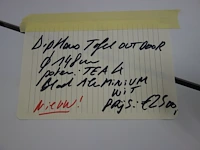 Tafel OUTDOOR
Ø 148cm
poten: TEAK
Blad ALUMINIUM
WIT
NIEUW! PRijS: €2500,